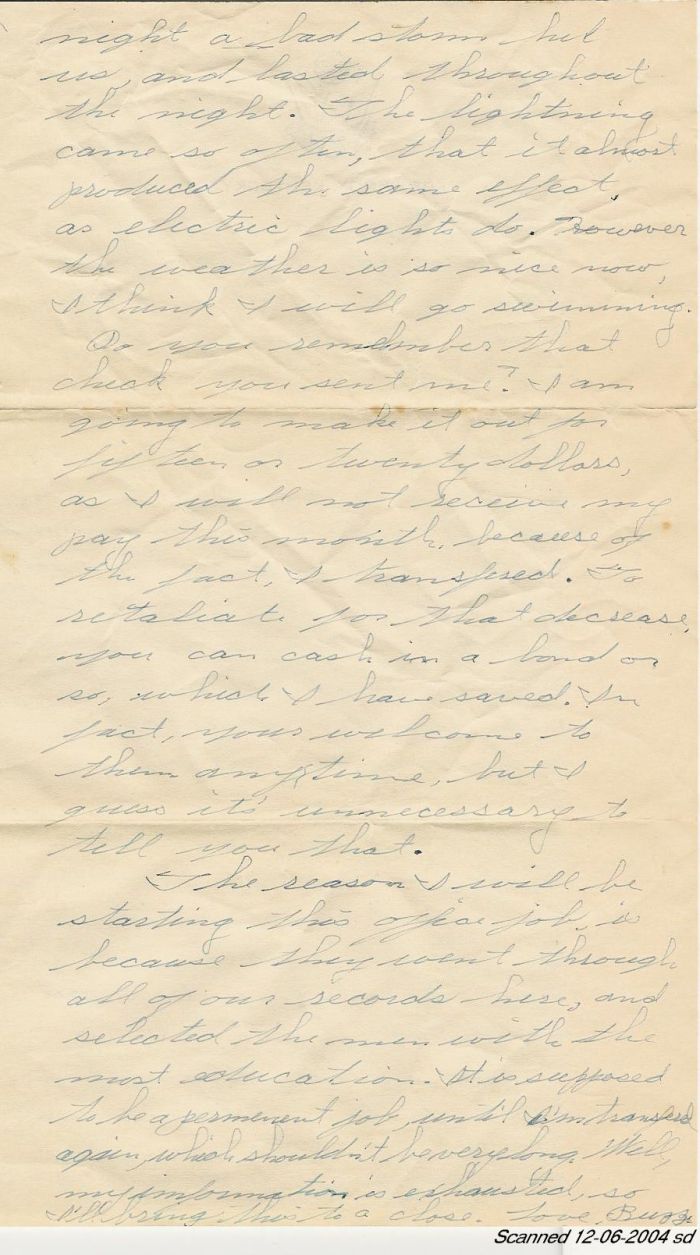 night a bad storm hit
us, and lasted throughout
the night. The lightning
came so often, that it almost
produced the same effect,
as electric lights do. However
the weather is so nice now,
I think I will go swimming.
Do you remember that
check you sent me? I am
going to make it out for
fifteen or twenty dollars,
as I will not receive my
pay this month, because of
the fact, I transfered. To
retaliate for that decrease,
you can cash in a bond or
so, which I have saved. In
fact, your welcome to
them anytime, but I
guess it's unnecessary to
tell you that.
The reason I will be
starting this office job, is
because they went through
all of our records here, and
selected the men with the
most education. It is supposed
to be a permenent job, until I'm transferd
again, which shouldn't be very long. Well,
my information is exhausted, so
I'll bring this to a close. Love,
Scanned 12-06-2004 sd